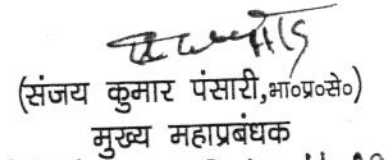 (संजय कुमार पंसारी,भा०प्र०से०)
मुख्य महाप्रबंधक